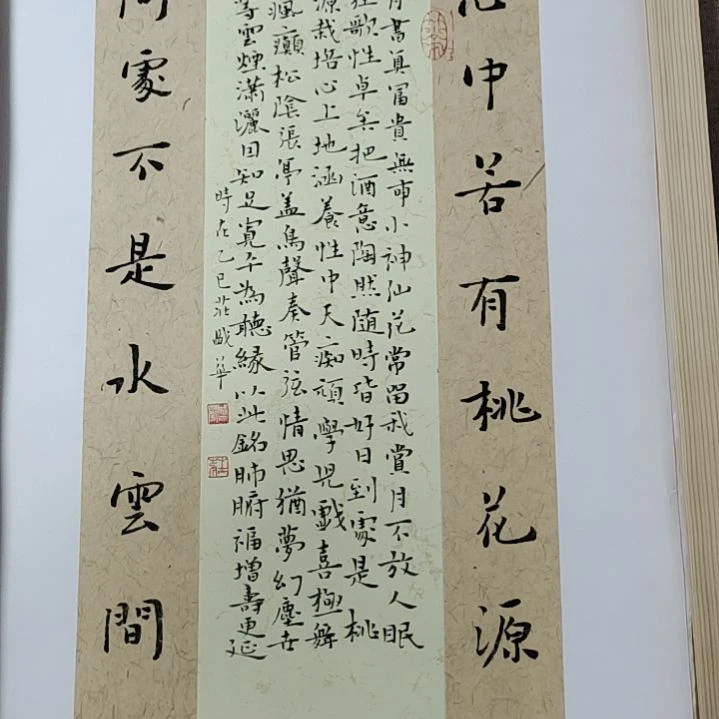 心中若有桃花源
有書真富貴無事小神仙花常留我賞月不放人眠
狂歌性卓矣把酒意陶然随時皆好日到處是桃
源栽培心上地涵養性中天痴頑學児戲喜極舞
瘋癲松陰張亭盖鳥聲奏管弦情思猶夢幻塵世
等雲煙潇灑因知足寬平為聽緣以此銘肺腑福增壽更延
時在乙巳莊華
何處不是水雲間